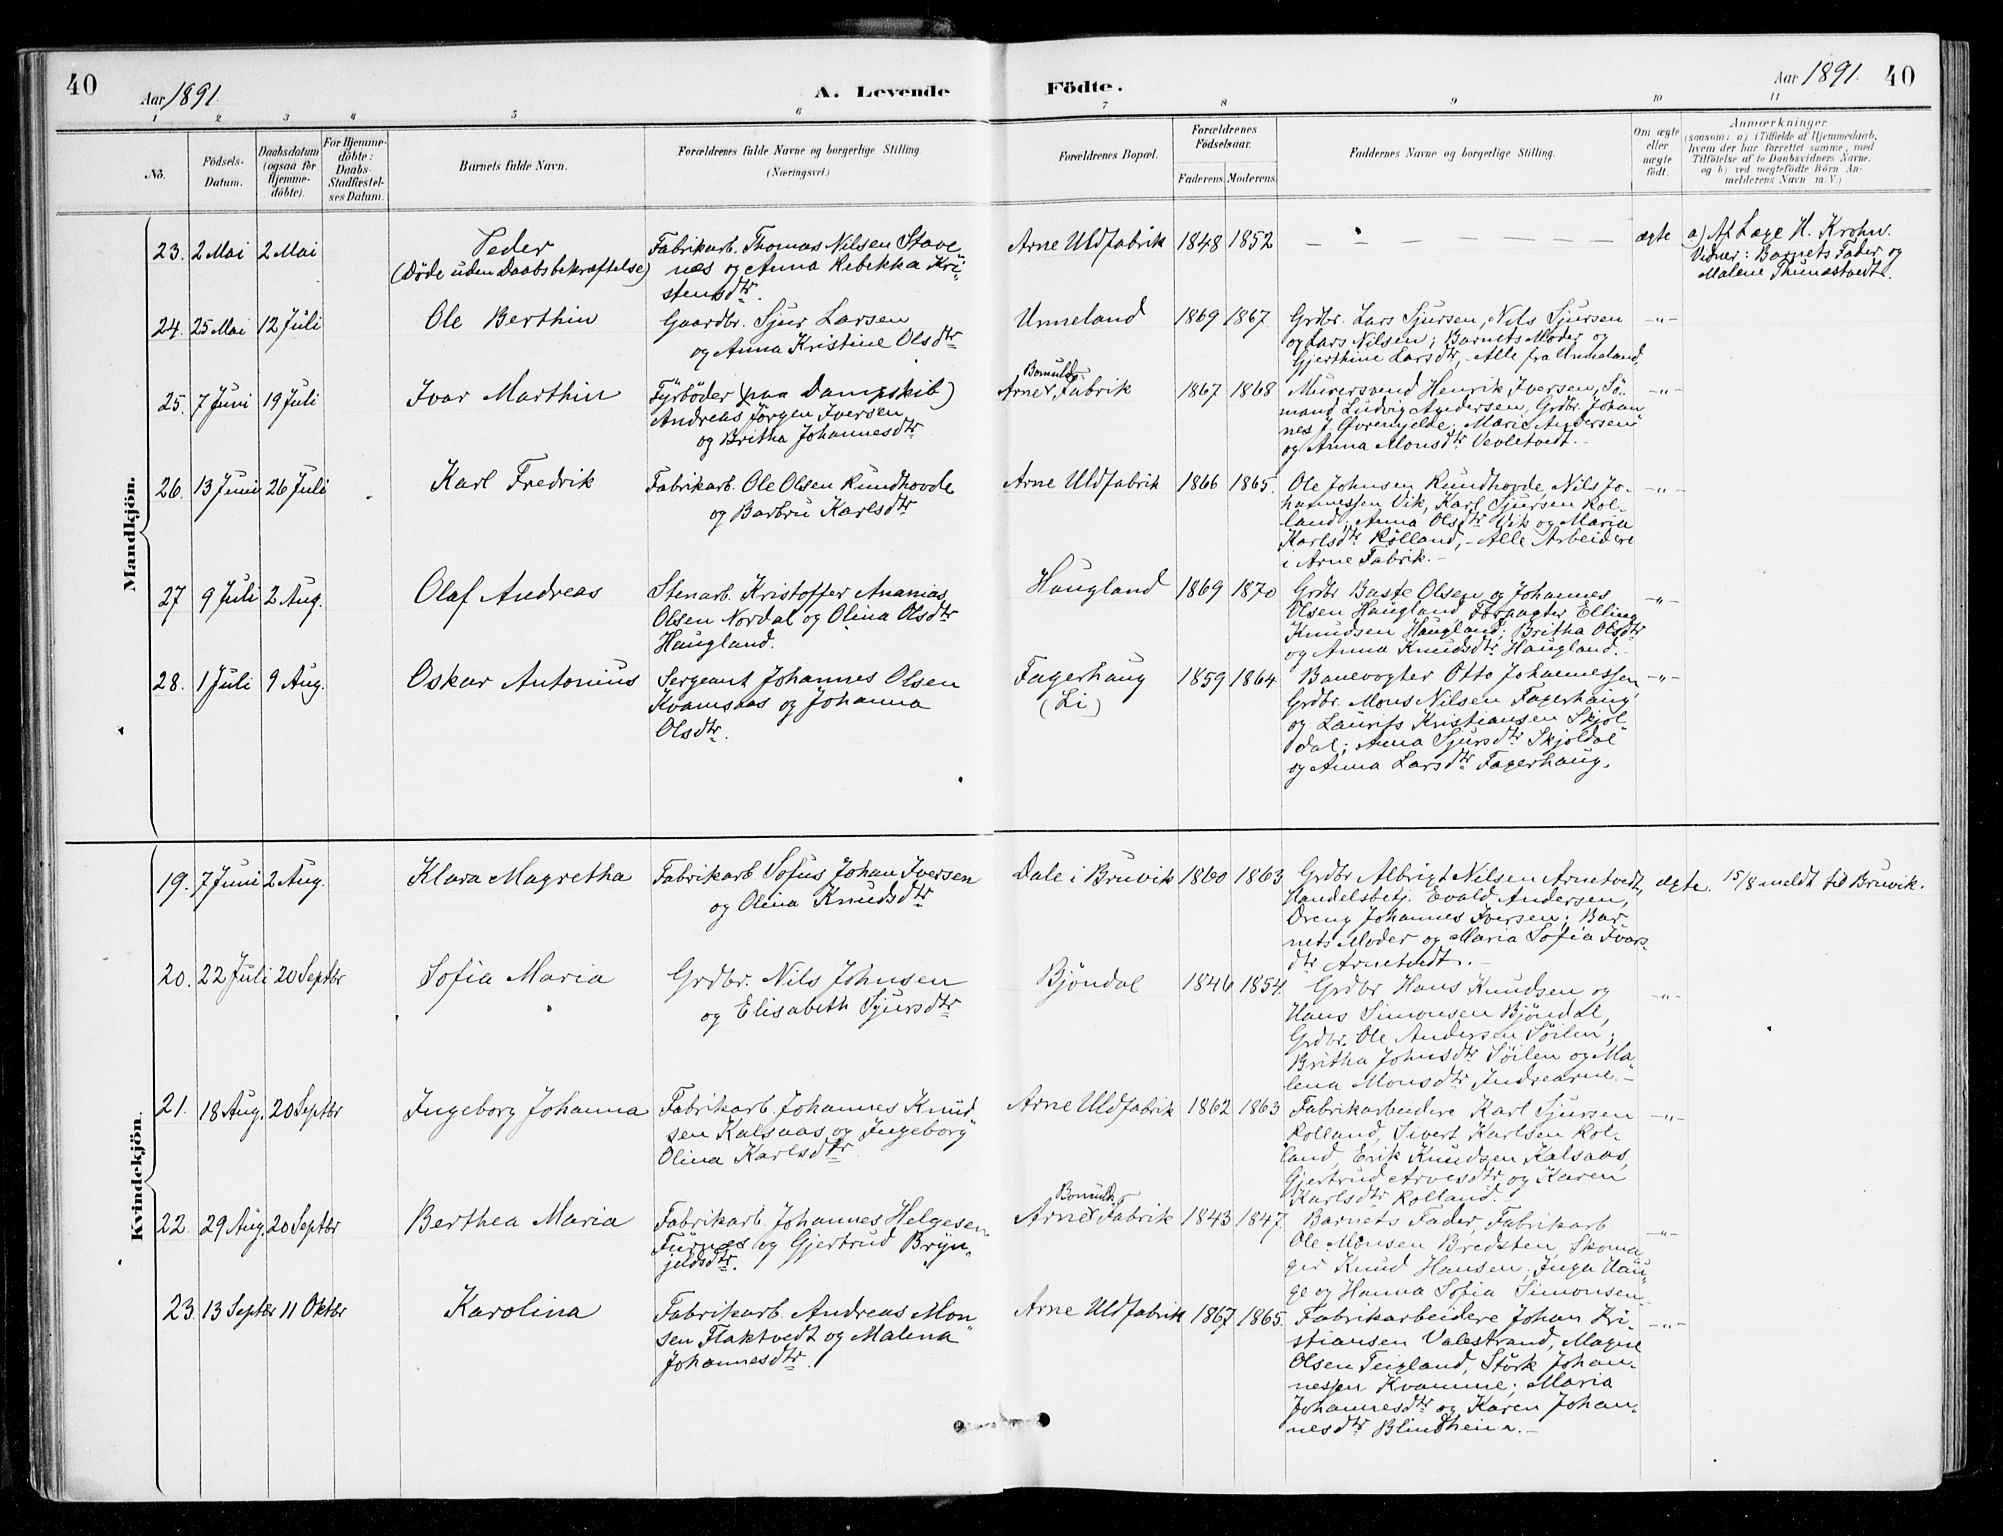 40
Aar 1891.
A. Levende
Födte.
Aar 1891.
40
1 2 3 4 5 6 7 8 9 10 11
No.
Födsels-
Datum.
Daabsdatum
(ogsaa for
Hjemme-
döbte).
For Hjemme-
döbte:
Daabs-
Stadfæstel-
ses Datum.
Barnets fulde Navn.
Forældrenes fulde Navne og borgerlige Stilling.
(Næringsvei.)
Forældrenes Bopæl.
Forældrenes
Födselsaar.
Faderens. Moderens.
Faddernes Navne og borgerlige Stilling.
Om ægte
eller
uægte
födt.
Anmærkninger
(saasom: a) i Tilfælde af Hjemmedaab,
hvem der har forrettet samme, med
Tilföielse af to Daabsvidners Navne,
og b) ved uægtefödte Börn An-
melderens Navn m. V.)
Mandkjön.
23. 2 Mai 2 Mai
Peder
(Döde uden Daabsbekræftelse)
Fabrikarb. Thomas Nilsen Stave-
næs og Anna Rebekka Kri-
stensdtr.
Arne Uldfabrik 1848 1852 — — — — — — — ægte
a) Af Læge H. Krohn.
Vidner: Barnets Fader og
Malene Thunestvedt.
24. 25 Mai 12 Juli
Ole Berthin
Gaardbr. Sjur Larsen
og Anna Kristine Olsdtr
Unneland 1869 1867.
Grdbr. Lars Sjursen, Nils Sjursen
og Lars Nilsen; Barnets Moder og
Gjerthine Larsdtr, – Alle fra Unneland.
—"—
25. 7 Juni 19 Juli
Ivar Marthin
Fyrböder (paa Dampskib)
Andreas Jörgen Iversen
og Britha Johannesdtr
Bomulds-
Arne Fabrik 1867 1868
Murersvend Henrik Iversen, Sö-
mand Ludvig Andersen, Grdbr. Johan-
nes J. Övremjelde; Marie Andersen
og Anna Monsdtr Vevletvedt. –
—"—
26. 13 Juni 26 Juli
Karl Fredrik
Fabrikarb. Ole Olsen Rundhovde
og Barbru Karlsdtr
Arne Uldfabrik 1866 1865.
Ole Johnsen Rundhovde, Nils Jo-
hannessen Vik, Karl Sjursen Rol-
land, Anna Olsdtr Vik og Maria
Karlsdtr Rolland, – Alle Arbeidere
i Arne Fabrik. –
—"—
27 9 Juli 2 Aug.
Olaf Andreas
Stenarb. Kristoffer Ananias
Olsen Nordal og Olina Olsdtr
Haugland.
Haugland 1869 1870
Grdbr Baste Olsen og Johannes
Olsen Haugland, Forpagter Elling
Knudsen Haugland; Britha Olsdtr
og Anna Knudsdtr Haugland. –
—"—
28. 1 Juli 9 Aug.
Oskar Antonius
Sergeant Johannes Olsen
Kvamsaas og Johanna
Olsdtr.
Fagerhaug
(Li)
1859 1864
Banevogter Otto Johannessen,
Grdbr. Mons Nilsen Fagerhaug
og Laurits Kristiansen Skjol-
dal; Anna Sjursdtr Skjoldal
og Anna Larsdtr Fagerhaug.
—"—
Kvindekjön.
19. 7 Juni 2 Aug.
Klara Magretha
Fabrikarb Sofus Johan Iversen
og Olina Knudsdtr
Dale i Bruvik 1860 1863
Grdbr Albrigt Nilsen Arnetvedt,
Handelsbetj. Evald Andersen,
Dreng Johannes Iversen; Bar-
nets Moder og Maria Sofia Ivars-
dtr Arnetvedt. –
ægte. 15/8 meldt til Bruvik.
20. 22 Juli 20 Septbr
Sofia Maria
Grdbr. Nils Johnsen
og Elisabeth Sjursdtr
Bjöndal 1846 1854.
Grdbr Hans Knudsen og
Hans Simonsen Bjöndal,
Grdbr. Ole Andersen Söilen;
Britha Johnsdtr Söilen og Ma-
lena Monsdtr Indrearne. –
—"—
21. 18 Aug. 20 Septbr
Ingeborg Johanna
Fabrikarb. Johannes Knud-
sen Kalsaas og Ingeborg
Olina Karlsdtr
Arne Uldfabrik 1862 1863
Fabrikarbeidere Karl Sjursen
Rolland, Sivert Karlsen Rol-
land, Erik Knudsen Kalsaas,
Gjertrud Arvesdtr og Karen
Karlsdtr Rolland. –
—"—
22. 29 Aug. 20 Septbr
Berthea Maria
Fabrikarb. Johannes Helgesen
Furnes og Gjertrud Bryn-
jeldsdtr.
Bomulds-
Arne Fabrik 1843 1847
Barnets Fader, Fabrikarb
Ole Monsen Bredsten, Skoma-
ger Knud Hansen; Inga Hau-
ge og Hanna Sofia Simonsen.
—"—
23. 13 Septbr 11 Oktbr
Karolina
Fabrikarb. Andreas Mon-
sen Flaktvedt og Malena
Johannesdtr.
Arne Uldfabrik 1867 1865.
Fabrikarbeidere Johan Kri-
stiansen Valestrand, Magne
Olsen Teigland, Störk Johan-
nessen Kvamme; Maria
Johannesdtr og Karen Johan-
nesdtr Blindheim. –
—"—